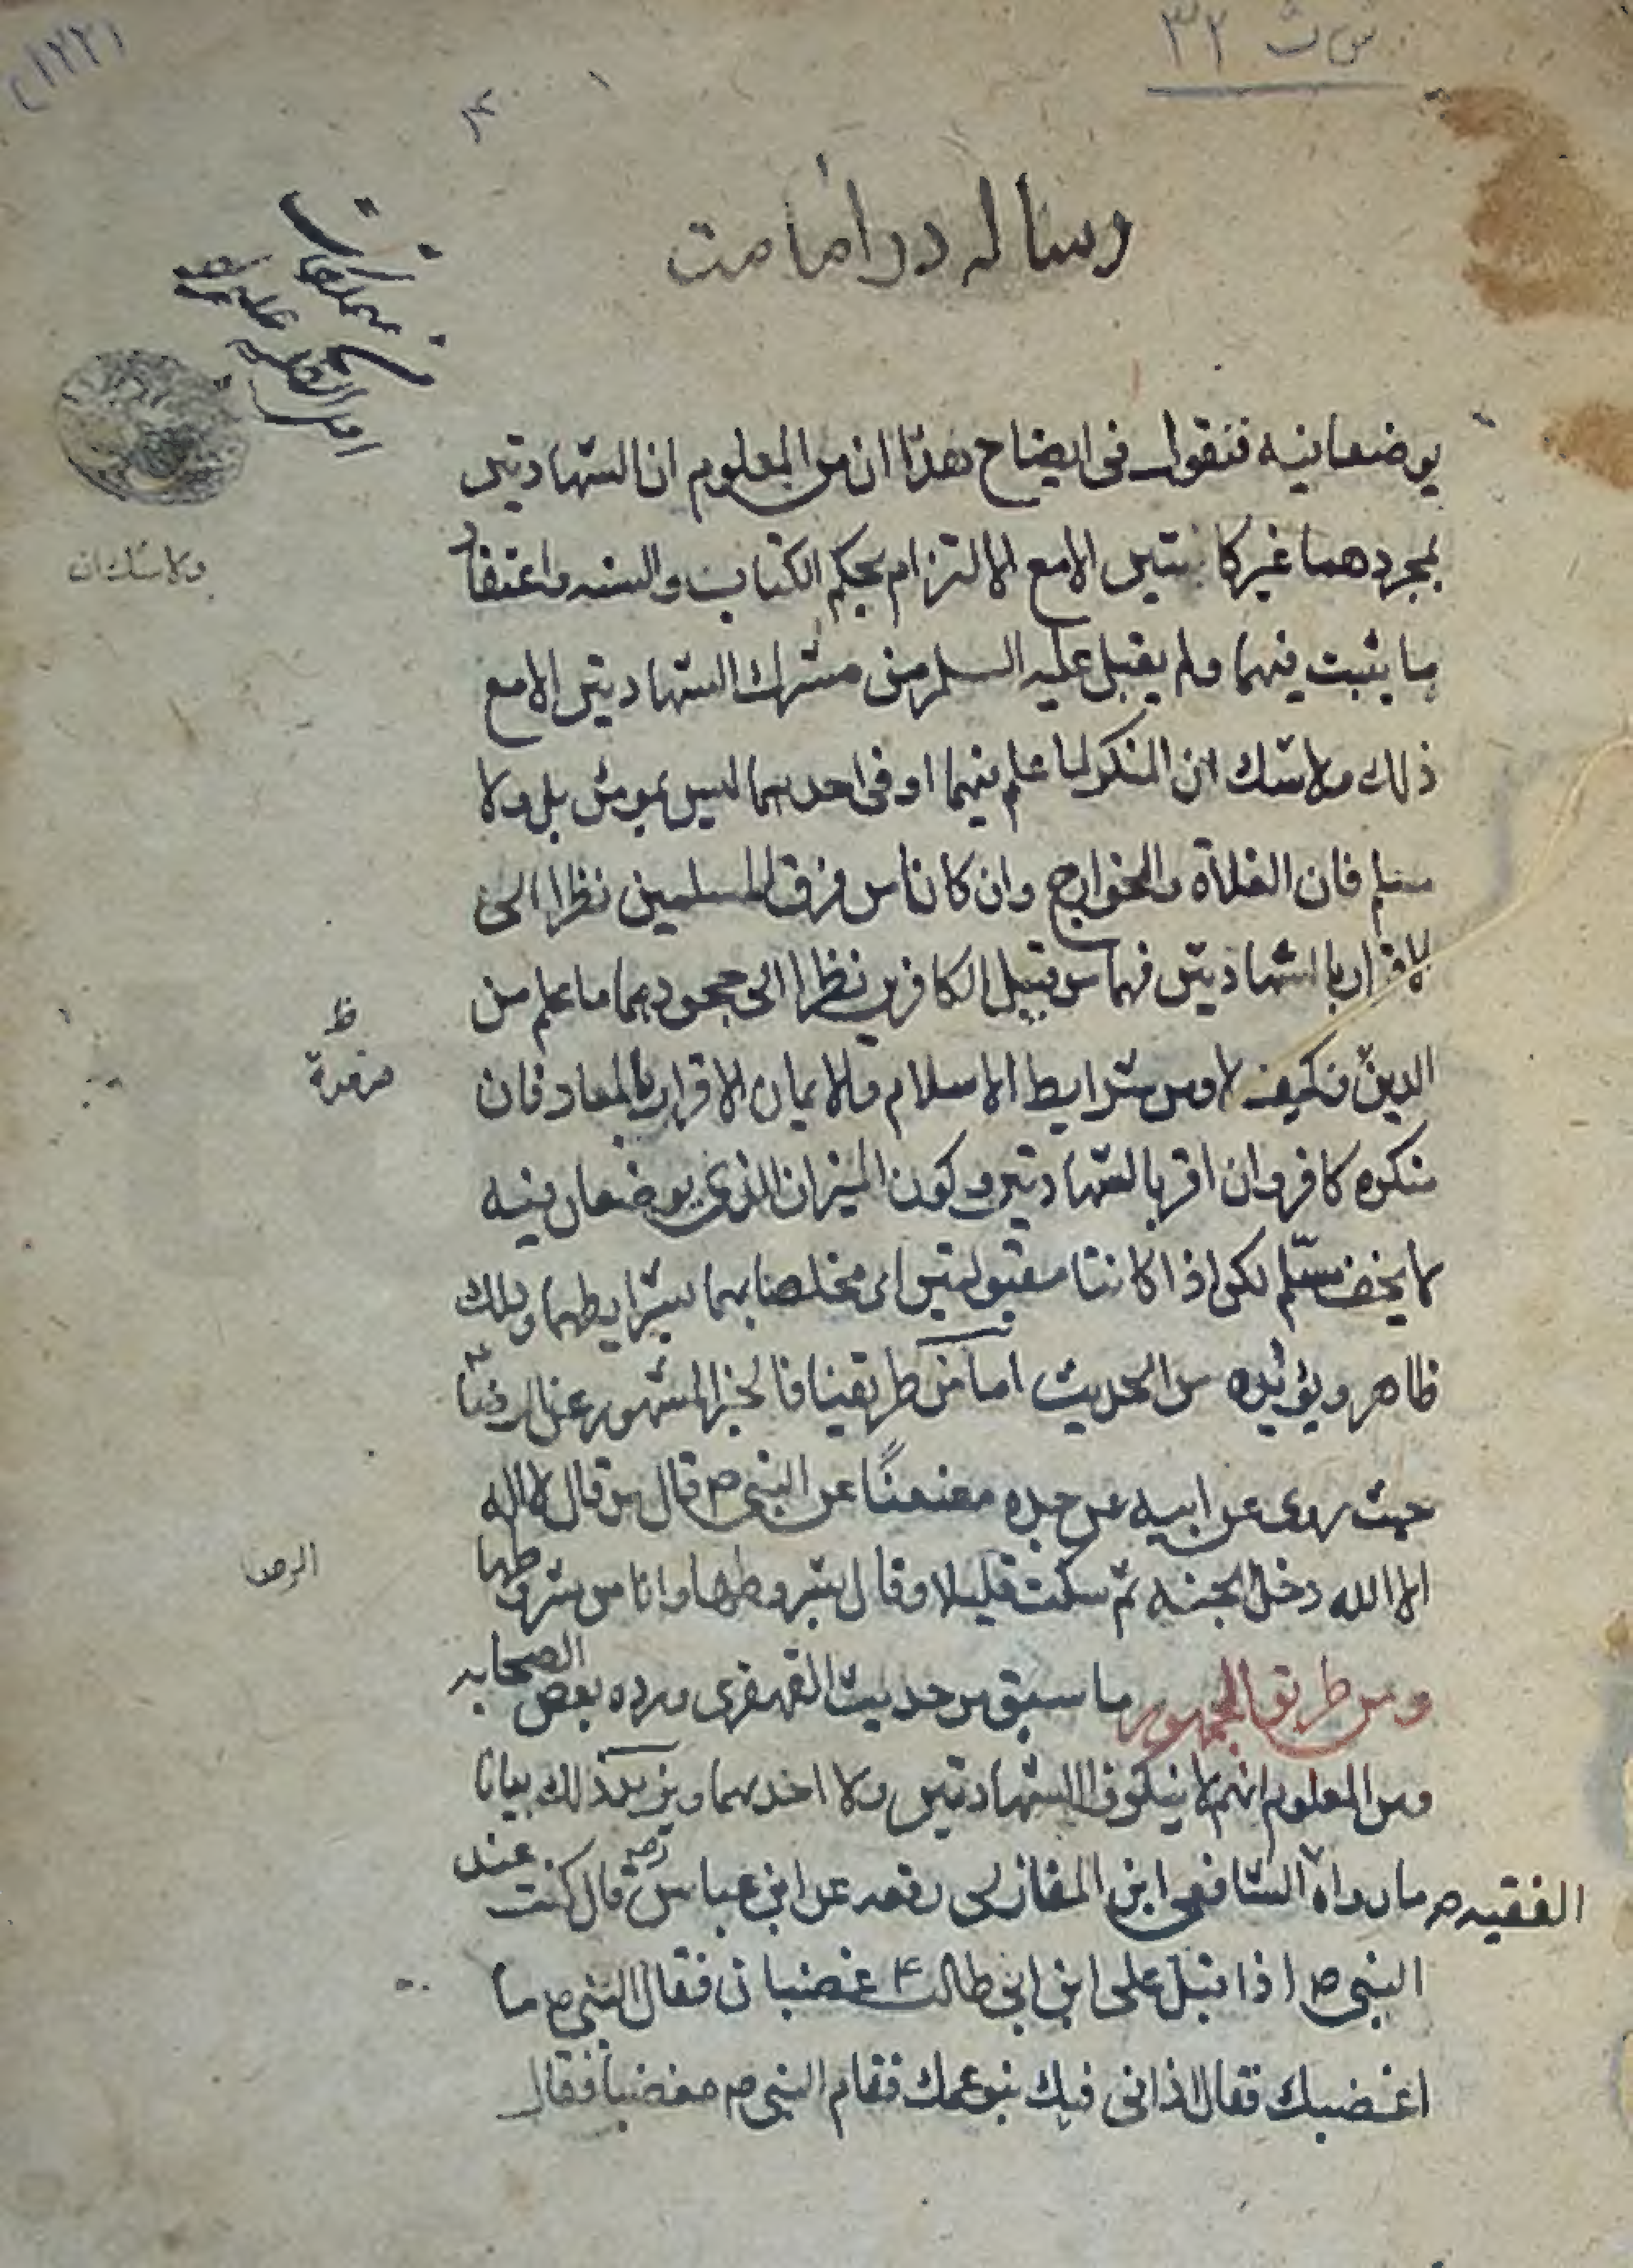 س ت ٣٢
رساله در امامت
يوضعا فيه فنقول فى ايضاح هذا ان من المعلوم ان الشهادتين
بمجردهما غير كافيتين الا مع الالتزام بحكم الكتاب والسنه واعتقاد
ما يثبت فيهما ولم يقبل عليه السلم من مشرك الشهادتين الا مع
ذلك ولا شك ان المنكر لما علم منهما او فى احدهما ليس بمومن بل ولا
ولا شك ان
مسلم فان الغلاة والخوارج وان كانا من فرق المسلمين نظرا الى
الاقرار بالشهادتين فهما من قبيل الكافرين نظرا الى جحودهما ما علم من
ظ
الدين فكيف لا ومن شرايط الاسلام والايمان الاقرار بالمعاد فان
منكره كافر وان اقر بالشهادتين وكون الميزان الذى يوضعان فيه
لا يخف مسلم لكن اذا كانتا مقبولتين اى مخلصا بهما بشرايطهما وذلك
ظاهر ويؤيده من الحديث اما من طريقنا فالخبر المشهور عن الرضا ع
حيث روى عن ابيه عن جده معنعنًا عن النبى ص قال من قال لا اله
الا الله دخل الجنه ثم سكت قليلا وقال بشروطها وانا من شروطها
الرضا
ومن طريق الجمهور ما سبق من حديث القهقرى ورده بعض الصحابه
ومن المعلوم انهم لا ينكرون الشهادتين ولا احدهما ويزيد ذلك بيانا
الفقيه ص ما رواه الشافعى ابن المغازلى رفعه عن ابن عباس رض قال كنت عند
النبى ص اذا قبل على ابن ابى طالب ع غضبان فقال النبى ص ما
اغضبك فقال اذانى فيك بنو عمك فقام النبى ص مغضبا فقال